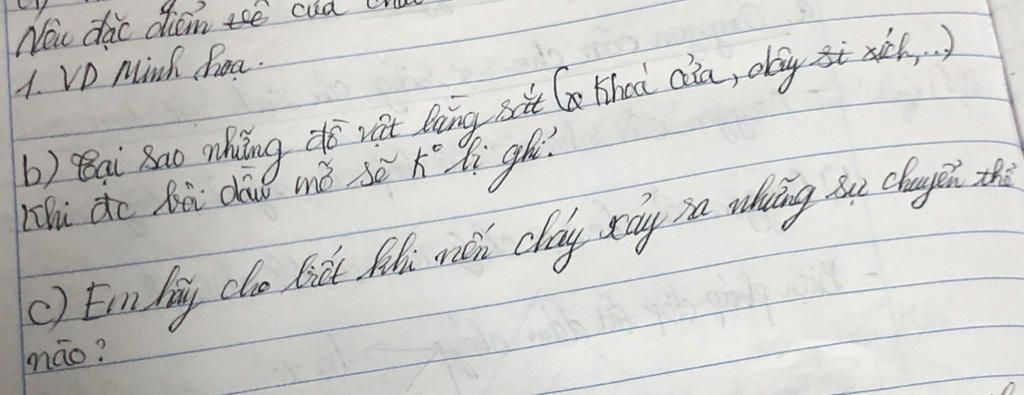 Nêu đặc điểm của
1. VD Minh họa.
b) Tại sao những đồ vật bằng sắt ( khoá cửa, dây si xích,...)
khi đc bôi dầu mỡ sẽ k° bị ghỉ?
c) Em hãy cho biết khi nến cháy xảy ra những sự chuyển thể
nào?